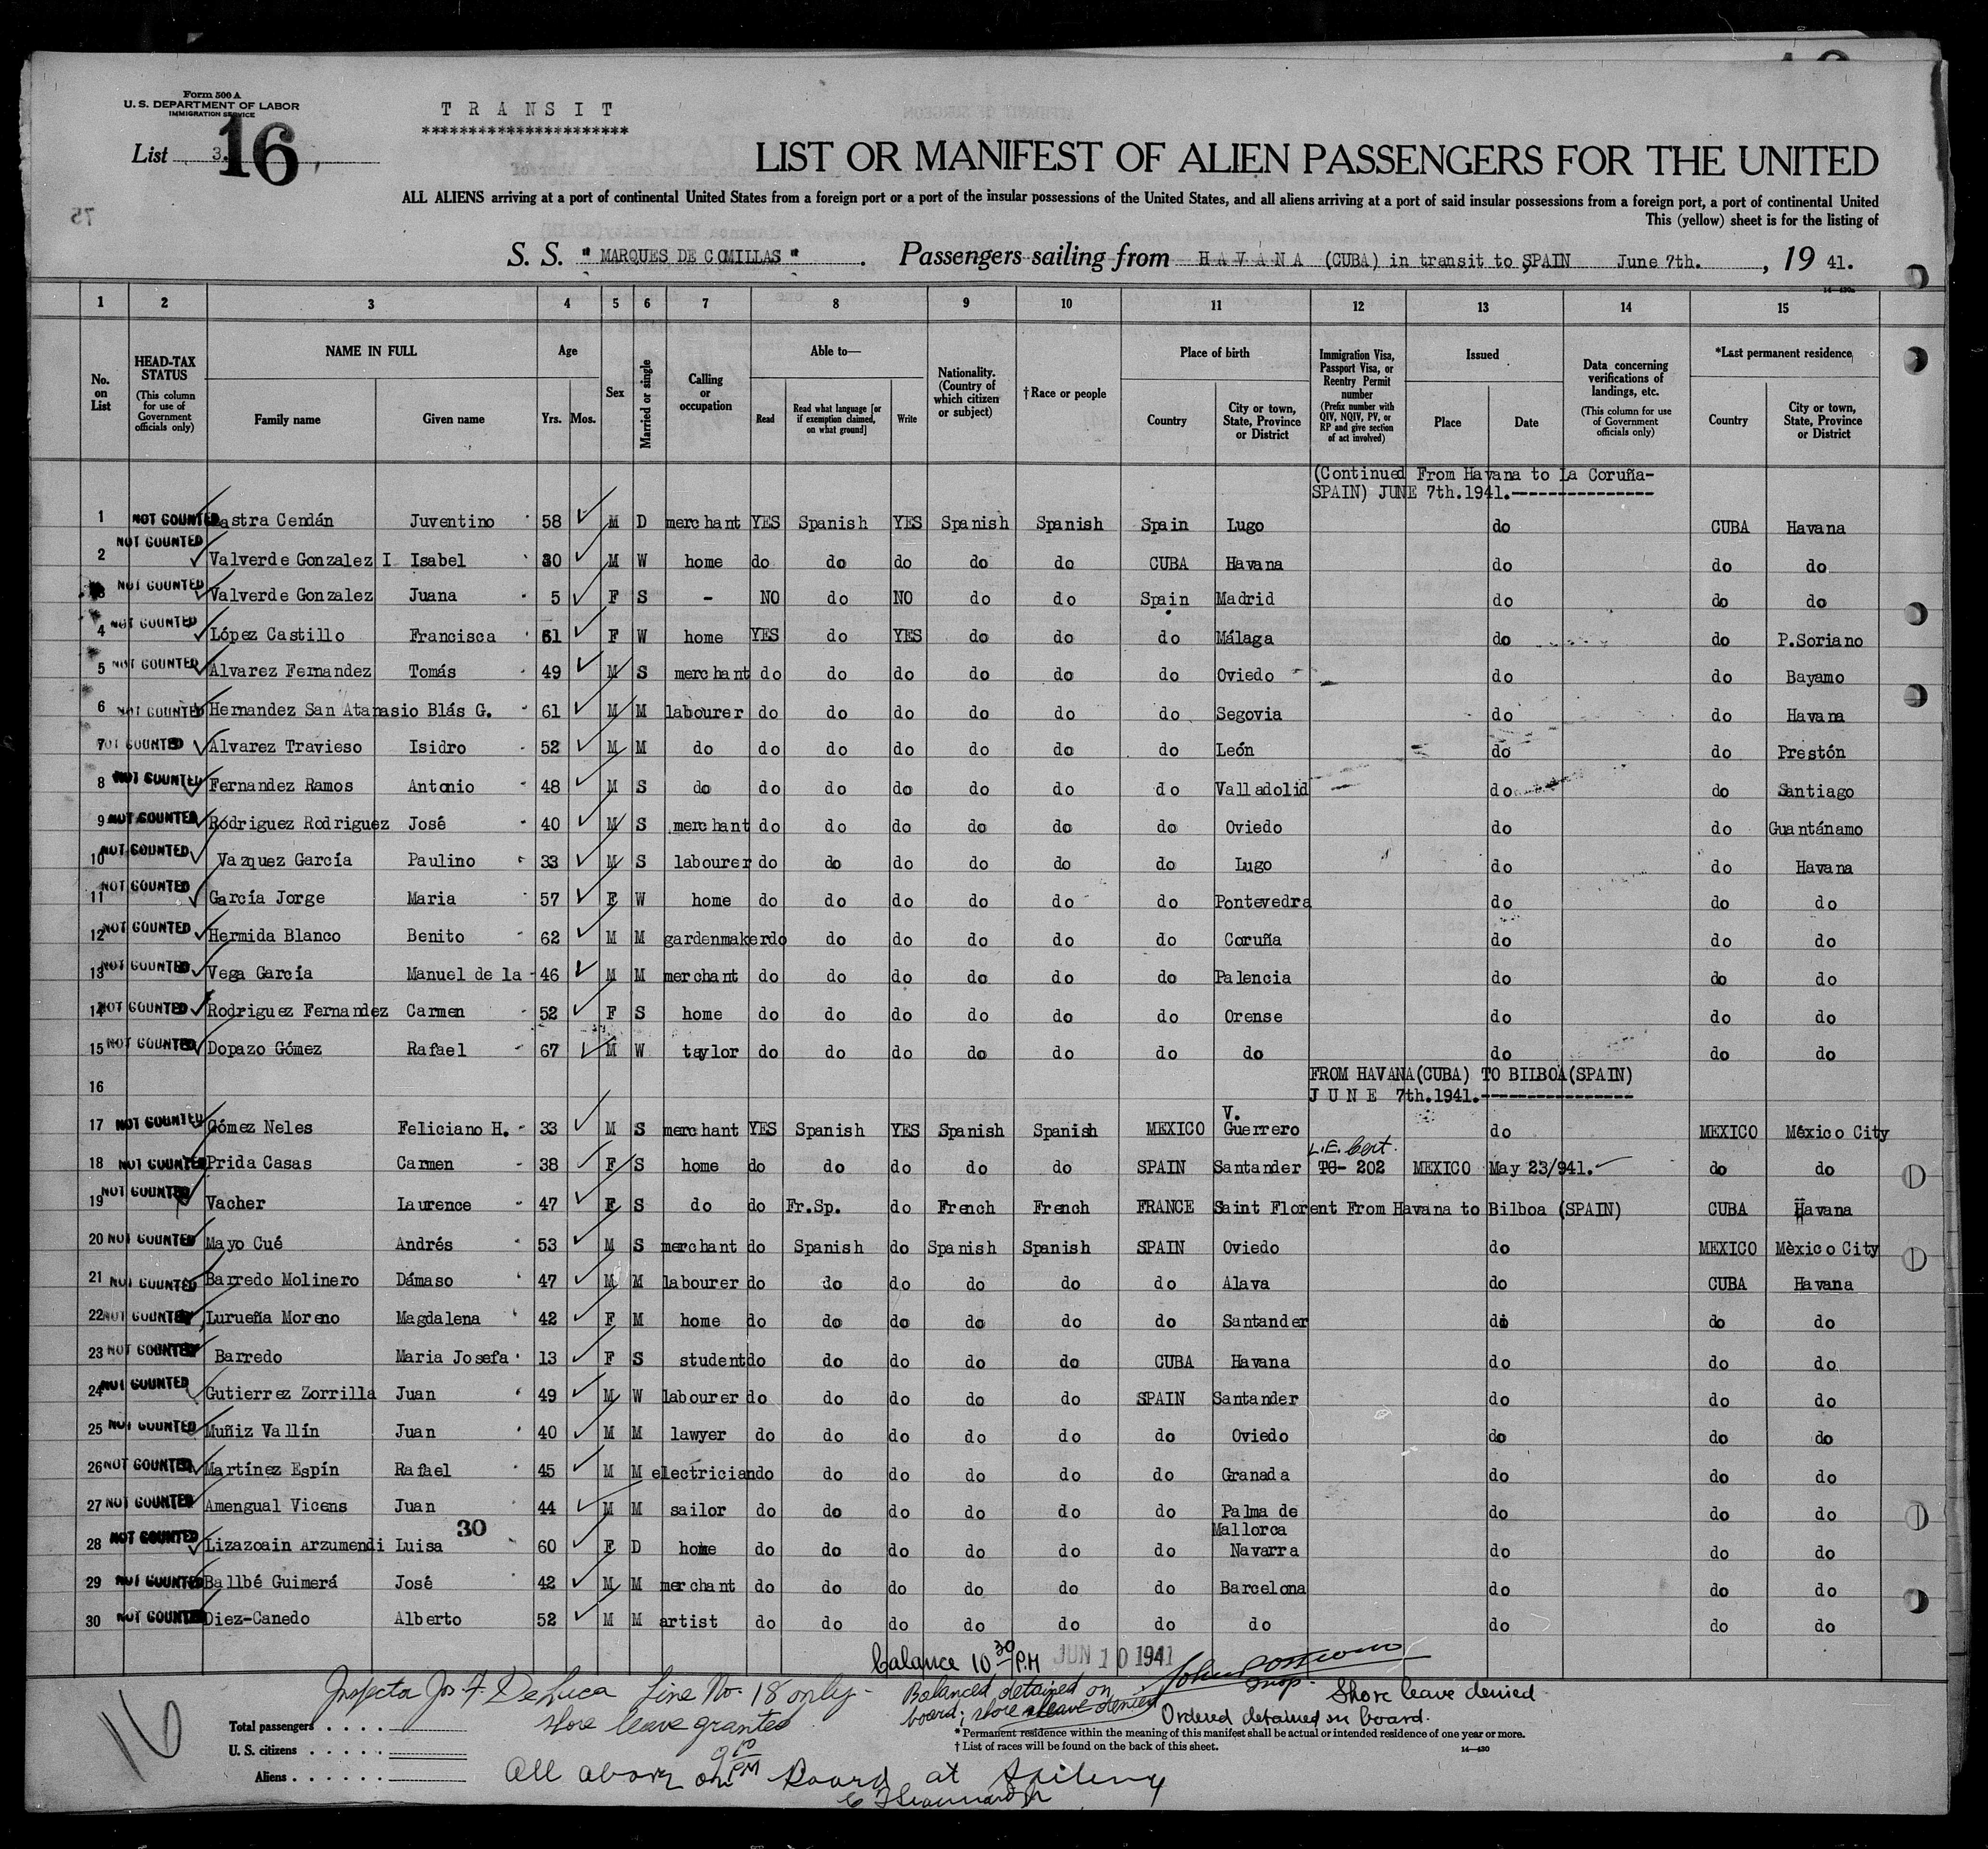 Form 500 A
U. S. DEPARTMENT OF LABOR
IMMIGRATION SERVICE
T R A N S I T
**********************
List 3. 16
LIST OR MANIFEST OF ALIEN PASSENGERS FOR THE UNITED
ALL ALIENS arriving at a port of continental United States from a foreign port or a port of the insular possessions of the United States, and all aliens arriving at a port of said insular possessions from a foreign port, a port of continental United
This (yellow) sheet is for the listing of
75
S. S. " MARQUES DE COMILLAS " . Passengers sailing from H A V A N A (CUBA) in transit to SPAIN June 7th. , 19 41.
14—430a
1 2 3 4 5 6 7 8 9 10 11 12 13 14 15
No. on List
HEAD-TAX STATUS (This column for use of Government officials only)
NAME IN FULL Family name Given name
Age Yrs. Mos.
Sex
Married or single
Calling or occupation
Able to— Read Read what language [or if exemption claimed, on what ground] Write
Nationality. (Country of which citizen or subject)
† Race or people
Place of birth Country City or town, State, Province or District
Immigration Visa, Passport Visa, or Reentry Permit number (Prefix number with QIV, NQIV, PV, or RP and give section of act involved)
Issued Place Date
Data concerning verifications of landings, etc. (This column for use of Government officials only)
*Last permanent residence Country City or town, State, Province or District
(Continued From Havana to La Coruña-
SPAIN) JUNE 7th.1941.---------------
1 NOT COUNTED Lastra Cendán Juventino 58 M D merchant YES Spanish YES Spanish Spanish Spain Lugo do CUBA Havana
2 NOT COUNTED Valverde Gonzalez I Isabel 30 M W home do do do do do CUBA Havana do do do
3 NOT COUNTED Valverde Gonzalez Juana 5 F S - NO do NO do do Spain Madrid do do do
4 NOT COUNTED López Castillo Francisca 61 F W home YES do YES do do do Málaga do do P.Soriano
5 NOT COUNTED Alvarez Fernandez Tomás 49 M S merchant do do do do do do Oviedo do do Bayamo
6 NOT COUNTED Hernandez San Atanasio Blás G. 61 M M labourer do do do do do do Segovia do do Havana
7 NOT COUNTED Alvarez Travieso Isidro 52 M M do do do do do do do León do do Prestón
8 NOT COUNTED Fernandez Ramos Antonio 48 M S do do do do do do do Valladolid do do Santiago
9 NOT COUNTED Rodriguez Rodriguez José 40 M S merchant do do do do do do Oviedo do do Guantánamo
10 NOT COUNTED Vazquez García Paulino 33 M S labourer do do do do do do Lugo do do Havana
11 NOT COUNTED García Jorge Maria 57 F W home do do do do do do Pontevedra do do do
12 NOT COUNTED Hermida Blanco Benito 62 M M gardenmaker do do do do do do Coruña do do do
13 NOT COUNTED Vega García Manuel de la 46 M M merchant do do do do do do Palencia do do do
14 NOT COUNTED Rodriguez Fernandez Carmen 52 F S home do do do do do do Orense do do do
15 NOT COUNTED Dopazo Gómez Rafael 67 M W taylor do do do do do do do do do do
16 FROM HAVANA(CUBA) TO BILBOA(SPAIN)
J U N E 7th.1941.-----------------
17 NOT COUNTED Gómez Neles Feliciano H. 33 M S merchant YES Spanish YES Spanish Spanish MEXICO V. Guerrero do MEXICO México City
18 NOT COUNTED Prida Casas Carmen 38 F S home do do do do do SPAIN Santander L.E. Cert. TC- 202 MEXICO May 23/941. do do
19 NOT COUNTED Vacher Laurence 47 F S do do Fr.Sp. do French French FRANCE Saint Florent From Havana to Bilboa (SPAIN) CUBA Havana
20 NOT COUNTED Mayo Cué Andrés 53 M S merchant do Spanish do Spanish Spanish SPAIN Oviedo do MEXICO Mèxico City
21 NOT COUNTED Barredo Molinero Dámaso 47 M M labourer do do do do do do Alava do CUBA Havana
22 NOT COUNTED Lurueña Moreno Magdalena 42 F M home do do do do do do Santander do do do
23 NOT COUNTED Barredo Maria Josefa 13 F S student do do do do do CUBA Havana do do do
24 NOT COUNTED Gutierrez Zorrilla Juan 49 M W labourer do do do do do SPAIN Santander do do do
25 NOT COUNTED Muñiz Vallín Juan 40 M M lawyer do do do do do do Oviedo do do do
26 NOT COUNTED Martínez Espín Rafael 45 M M electrician do do do do do do Granada do do do
27 NOT COUNTED Amengual Vicens Juan 44 M M sailor do do do do do do Palma de Mallorca do do do
30
28 NOT COUNTED Lizazoain Arzumendi Luisa 60 F D home do do do do do do Navarra do do do
29 NOT COUNTED Ballbé Guimerá José 42 M M merchant do do do do do do Barcelona do do do
30 NOT COUNTED Diez-Canedo Alberto 52 M M artist do do do do do do do do do do
balance 10 30 P.M JUN 10 1941
Inspector Jos F. DeLuca Line No. 18 only -
shore leave granted
Balanced detained on
board; shore leave denied
Insp.
Shore leave denied
Ordered detained on board.
16
Total passengers . . . .
U. S. citizens . . . . .
Aliens . . . . . .
* Permanent residence within the meaning of this manifest shall be actual or intended residence of one year or more.
† List of races will be found on the back of this sheet.
14—430
All above on Board at Sailing
9 PM